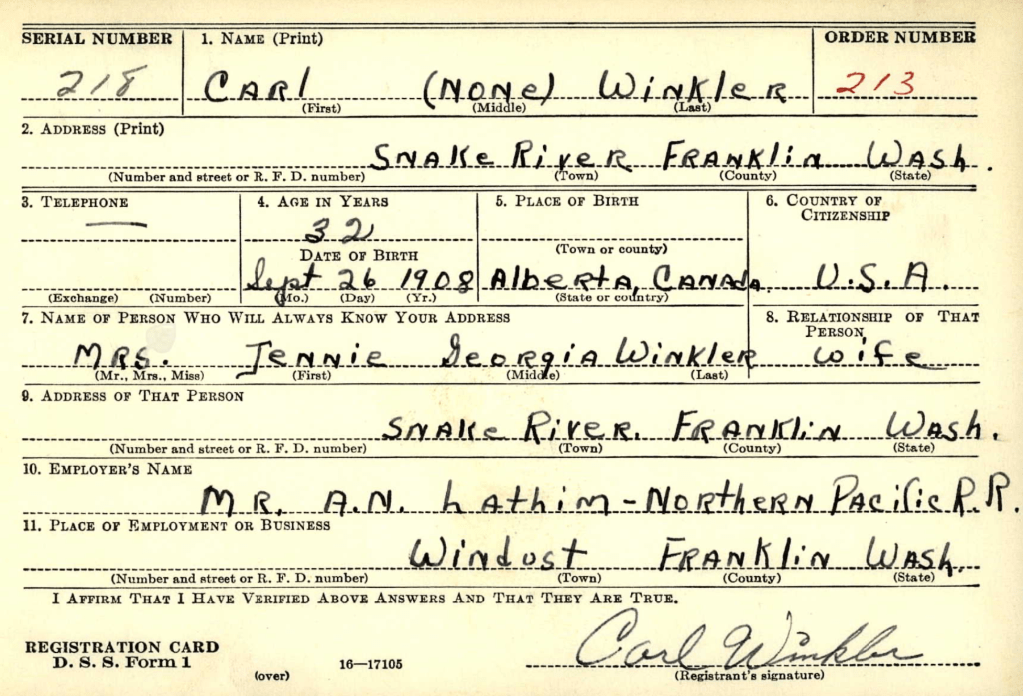 SERIAL NUMBER 1. NAME (Print) ORDER NUMBER
218 CARl (NONe) WiNKleR 213
(First) (Middle) (Last)
2. ADDRESS (Print)
SNAKe RiveR FRANKliN WASh.
(Number and street or R. F. D. number) (Town) (County) (State)
3. TELEPHONE 4. AGE IN YEARS 5. PLACE OF BIRTH 6. COUNTRY OF
CITIZENSHIP
— 32
DATE OF BIRTH (Town or county)
Sept 26 1908 AlbeRtA, CANAdA. U.S.A.
(Exchange) (Number) (Mo.) (Day) (Yr.) (State or country)
7. NAME OF PERSON WHO WILL ALWAYS KNOW YOUR ADDRESS 8. RELATIONSHIP OF THAT
PERSON
MRS. JeNNie GeoRgiA WiNKleR wife
(Mr., Mrs., Miss) (First) (Middle) (Last)
9. ADDRESS OF THAT PERSON
SNAKe RiveR. FRANKliN WASh.
(Number and street or R. F. D. number) (Town) (County) (State)
10. EMPLOYER'S NAME
MR. A.N. LAthiM - NORtheRN PAcific R.R.
11. PLACE OF EMPLOYMENT OR BUSINESS
WiNdust FRANKliN WASh.
(Number and street or R. F. D. number) (Town) (County) (State)
I AFFIRM THAT I HAVE VERIFIED ABOVE ANSWERS AND THAT THEY ARE TRUE.
REGISTRATION CARD
D. S. S. Form 1 16—17105 Carl Winkler
(over) (Registrant's signature)